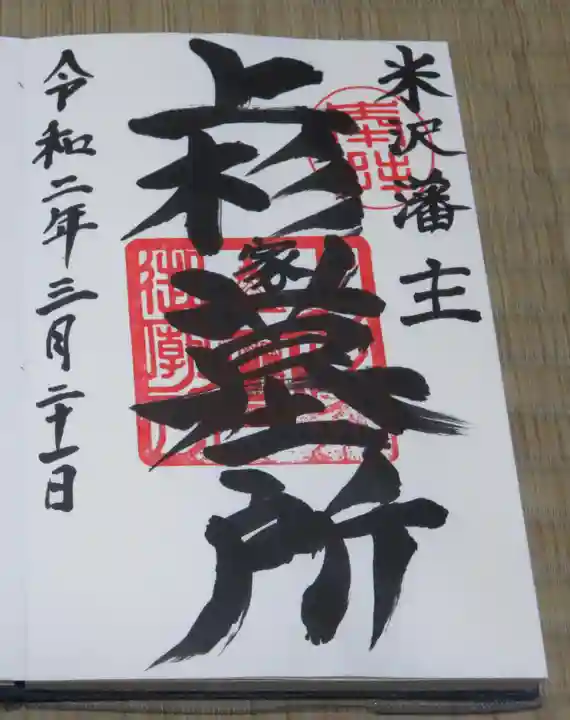 米沢藩主
奉拝
上杉家墓所
令和二年三月二十一日